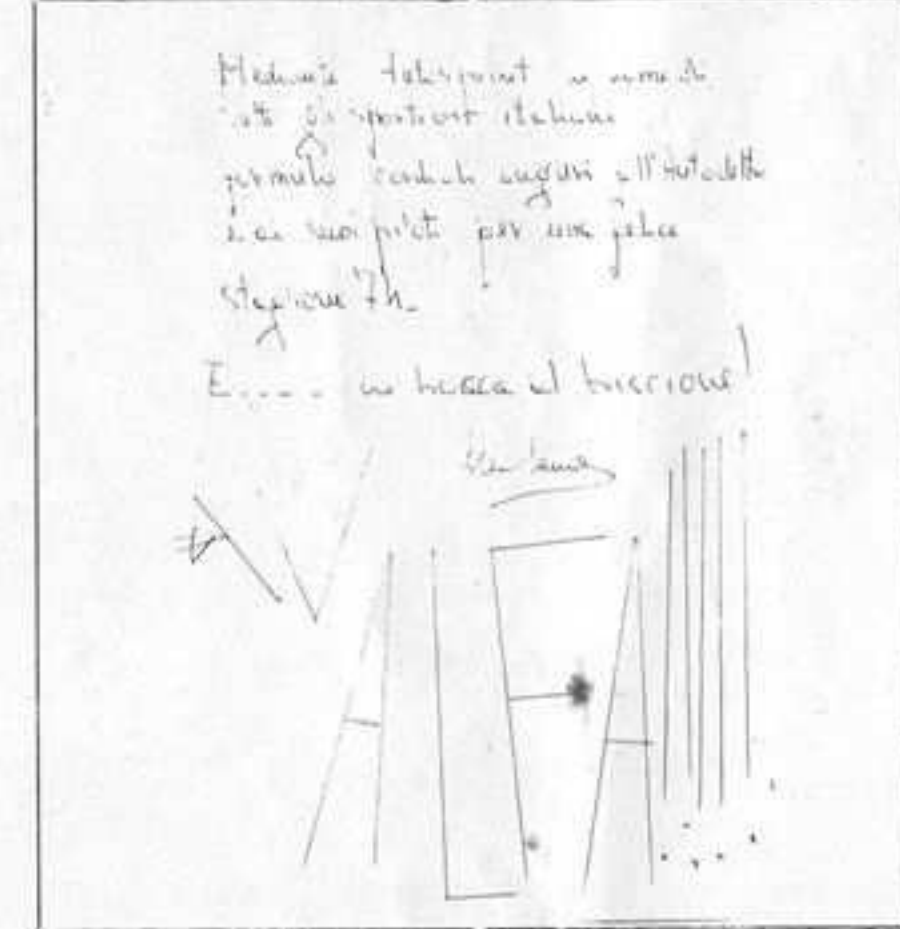 Mediante telesprint a nome di
tutti gli sportivi italiani
formulo cordiali auguri all'Autodelta
e ai suoi piloti per una felice
stagione '74_
E.... in bocca al biscione!
VIVA L'ALFA!!!!!